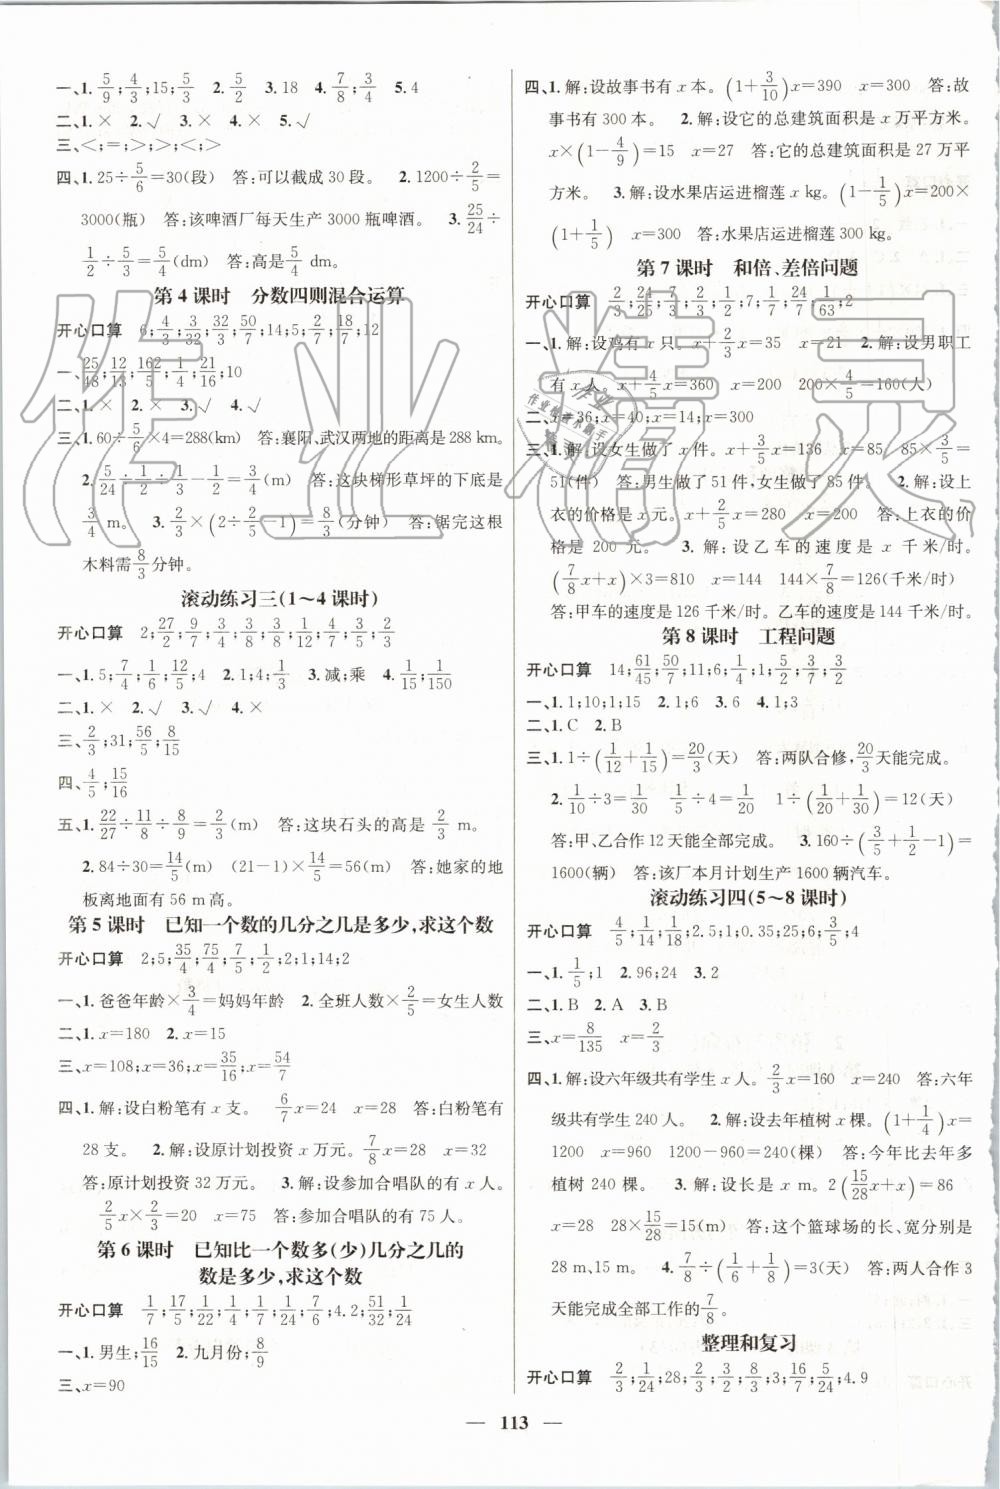 一、1. 5/9;3/4;15;5/3 2. 5/2 3. 18 4. 7/8;3/4 5. 4
二、1. × 2. √ 3. × 4. × 5. √
三、<;=;>;>;<;>
四、1. 25÷5/6=30(段) 答:可以截成 30 段。 2. 1200÷2/5=
3000(瓶) 答:该啤酒厂每天生产 3000 瓶啤酒。 3. 25/24÷
1/2÷5/3=5/4(dm) 答:高是5/4 dm。
第 4 课时 分数四则混合运算
开心口算 6;4/3;3/32;32/3;50/7;14;5;2/7;18/7;12
一、25/48;12/13;162/5;1/4;21/16;10
二、1. × 2. × 3. √ 4. √
三、1. 60÷5/6×4=288(km) 答:襄阳、武汉两地的距离是 288 km。
2. 5/24÷1/2÷1/2=3/4(m) 答:这块梯形草坪的下底是
3/4 m。 3. 2/3×(2÷2/5-1)=8/3(分钟) 答:锯完这根
木料需8/3分钟。
滚动练习三(1～4 课时)
开心口算 2;27/2;9/7;4/3;3/8;1/9;1/4;3/5;1/7;4/3
一、1. 5;7/4;1/6;12/5;4 2. 1;4;1/3 3. 减;乘 4. 1/15;1/150
二、1. × 2. √ 3. √ 4. ×
三、2/3;31;56/5;8/15
四、4/5;15/16
五、1. 22/27÷11/8÷8/9=2/3(m) 答:这块石头的高是 2/3 m。
2. 84÷30=14/5(m) (21-1)×14/5=56(m) 答:她家的地
板离地面有 56 m高。
第 5 课时 已知一个数的几分之几是多少,求这个数
开心口算 2;5;35/4;75/4;7/5;1/2;2;1;14;2
一、1. 爸爸年龄×3/4=妈妈年龄 2. 全班人数×2/5=女生人数
二、1. x=180 2. x=15
三、x=108;x=36;x=35/16;x=54/7
四、1. 解:设白粉笔有 x 支。 6/7x=24 x=28 答:白粉笔有
28 支。 2. 解:设原计划投资 x 万元。7/8x=28 x=32
答:原计划投资 32 万元。 3. 解:设参加合唱队的有 x 人。
2/5x×2/3=20 x=75 答:参加合唱队的有 75 人。
第 6 课时 已知比一个数多(少)几分之几的
数是多少,求这个数
开心口算 1/7;17/5;1/22;1/4;1/24;7/6;4. 2;51/32;1/24
一、1. 男生;16/15 2. 九月份;8/9
三、x=90
四、1. 解:设故事书有 x 本。(1+3/10)x=390 x=300 答:故
事书有 300 本。 2. 解:设它的总建筑面积是 x 万平方米。
x×(1-4/9)=15 x=27 答:它的总建筑面积是 27 万平
方米。 3. 解:设水果店运进榴莲 x kg。(1-1/5)x=200×
(1+1/5) x=300 答:水果店运进榴莲 300 kg。
第 7 课时 和倍、差倍问题
开心口算 2/3;24/25;7/3;2/3;1/2;7;1/7;24/7;1/63;2
一、1. 解:设鸡有 x 只。x+2/3x=35 x=21 2. 解:设男职工
有 x 人。x+4/5x=360 x=200 200×4/5=160(人)
二、x=36;x=40;x=14;x=300
三、1. 解:设女生做了 x 件。x+3/5x=136 x=85 85×3/5=
51(件) 答:男生做了 51 件,女生做了 85 件。 2. 解:设上
衣的价格是 x 元。x+2/5x=280 x=200 答:上衣的价
格是 200 元。 3. 解:设乙车的速度是 x 千米/时。
(7/8x+x)×3=810 x=144 144×7/8=126(千米/时)
答:甲车的速度是 126 千米/时。乙车的速度是 144 千米/时。
第 8 课时 工程问题
开心口算 14;61/45;50/7;11;6;1/4;1;5/2;3/7;3/2
一、1. 1;10;1;15 2. 1;6 3. 6 4. 1;3
二、1. C 2. B
三、1. 1÷(1/12+1/15)=20/3(天) 答:两队合修,20/3天能完成。
2. 1/10÷3=1/30 1/5÷4=1/20 1÷(1/20+1/30)=12(天)
答:甲、乙合作 12 天能全部完成。 3. 160÷(3/5+1/2-1)=
1600(辆) 答:该厂本月计划生产 1600 辆汽车。
滚动练习四(5～8 课时)
开心口算 4/5;1/14;1/18;2. 5;1;0. 35;25;6;3/5;4
一、1. 1/5;1 2. 96;24 3. 2
二、1. B 2. A 3. B
三、x=8/135 x=2/3
四、1. 解:设六年级共有学生 x 人。2/3x=160 x=240 答:六年
级共有学生 240 人。 2. 解:设去年植树 x 棵。(1+1/4)x=
1200 x=960 1200-960=240(棵) 答:今年比去年多
植树 240 棵。 3. 解:设长是 x m。2(15/28x+x)=86
x=28 28×15/28=15(m) 答:这个篮球场的长、宽分别是
28 m、15 m。 4. 7/8÷(1/6+1/8)=3(天) 答:两人合作 3
天能完成全部工作的7/8。
整理和复习
开心口算 2/3;1/24;28;2/3;8/3;3;16/7;5/24;4. 9
— 113 —